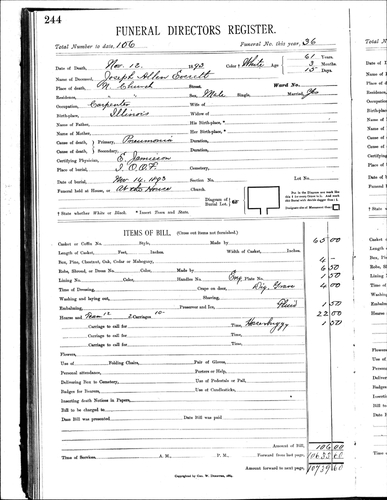 244
FUNERAL DIRECTORS REGISTER.
Total Number to date, 106 Funeral No. this year, 36
Date of Death, Nov. 12. 1893 Color † White Age 61 Years
Name of Deceased, Joseph Allen Everett 3 Months
Place of death, N. Church Street, 15 Days
Residence, Male Single, Ward No. Married, Yes
Occupation, Carpenter Wife of
Birth-place, Illinois Widow of
Name of Father, His Birth-place, *
Name of Mother, Her Birth-place, *
Cause of death, Primary, Pneumonia Duration,
Cause of death, Secondary, Duration,
Certifying Physician, E. Jamieson
Place of burial, I.O.O.F. Cemetery,
Date of burial, Nov 14. 1893 Section No. Lot No.
Funeral held at House, or At the House Church.
Diagram of Burial Lot.
† State whether White or Black. * Insert Town and State.
ITEMS OF BILL. (Cross out items not furnished.)
Casket or Coffin No. Style, Made by 65 00
Length of Casket, Feet, Inches. Width of Casket, Inches.
Box, Pine, Chestnut, Oak, Cedar or Mahogany, 4 -
Robe, Shroud, or Dress No. Color, Made by 6 50
Lining No. Color, Handles No. Plate No. 1 50
Time of Dressing, Crape on door, Dig Grave 4 00
Washing and laying out, Shaving,
Embalming, Preserver and Ice, Fluid 1 50
Hearse and Team 12 2 Carriages 10- 22 00
Carriage to call for Time, 1 50
Carriage to call for Time,
Carriage to call for Time,
Flowers,
Use of Folding Chairs, Pair of Gloves,
Personal attendance, Posters or Help,
Delivering Box to Cemetery, Use of Pedestals or Pall,
Badges for Bearers, Use of Candlesticks,
Inserting death Notices in Papers,
Bill to be charged to
Date Bill was presented Date Bill was paid
Amount of Bill, 106.00
Time of Services, A. M., P. M. Forward from last page,
Amount forward to next page,